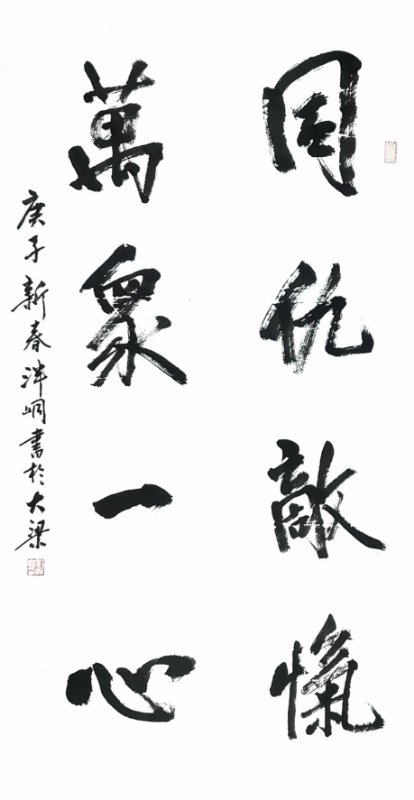 同仇敵愾
萬眾一心
庚子新春洋峒書於大梁